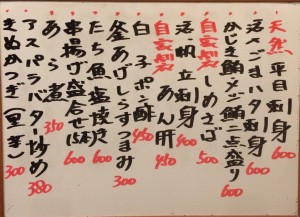 天然 平目刺身 600
活〆ごまハタ刺身 600
かじき鮪メゾ鮪二点盛り 600
自家製 しめさば 500
活帆立刺身 400
自家製 あん肝 450
白子ポン酢 450
釜あげしらすつまみ 300
たち魚塩焼き 600
串揚げ盛合せ(5本) 600
あら煮 350
アスパラバター炒め 380
きぬかつぎ(里芋) 300